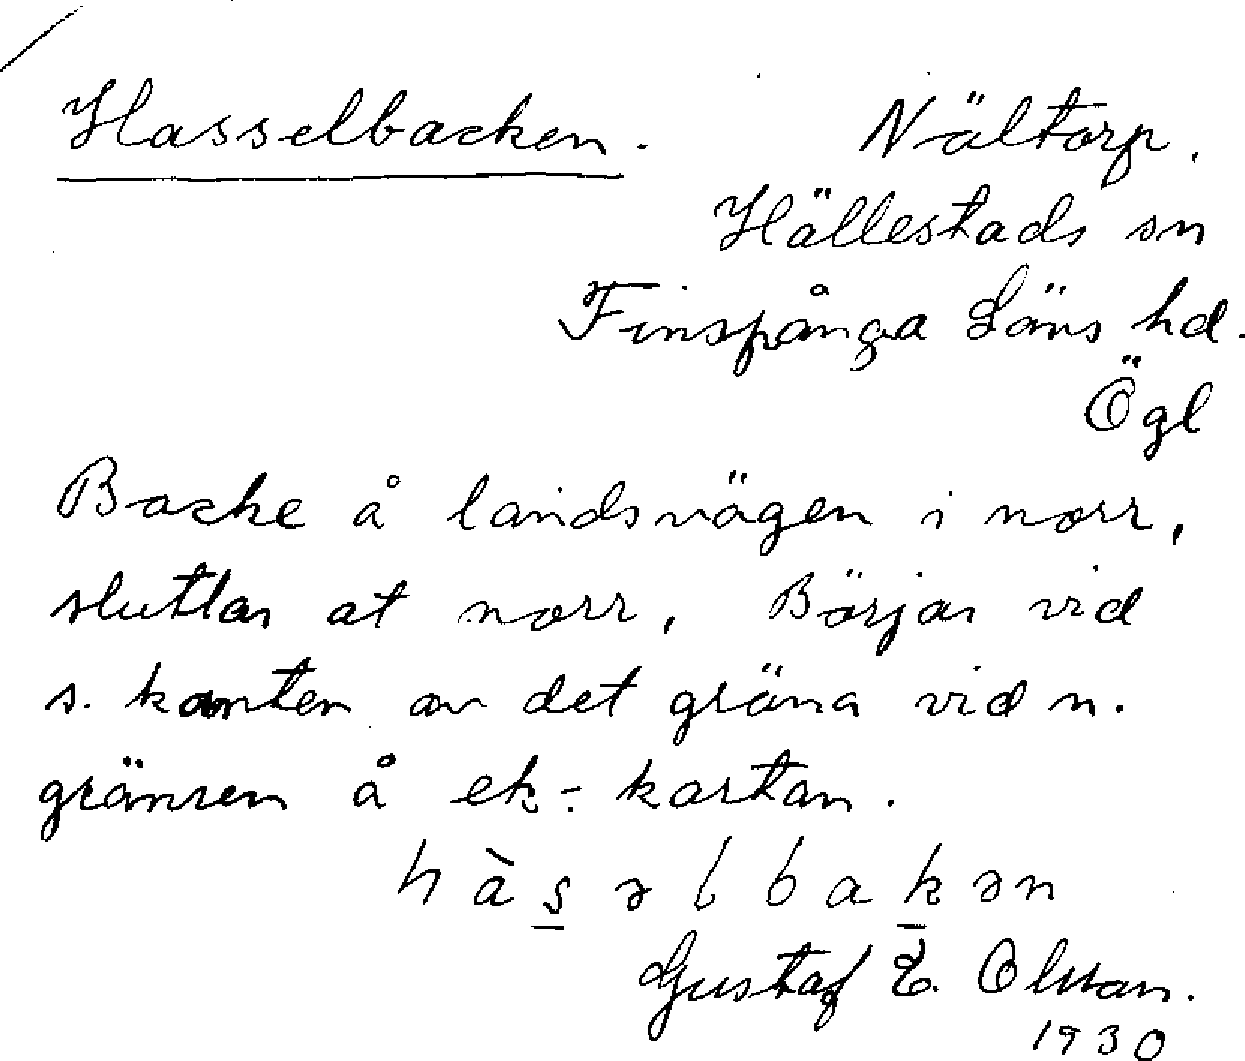 Hasselbacken. Nältorp.
Hällestads sn
Finspånga Läns hd.
Ögl
Backe å landsvägen i norr,
sluttar åt norr, Börjar vid
s. kanten av det gröna vid n.
gränsen å ek-kartan.
hàsəlbakən
Gustaf E. Olsson.
1930